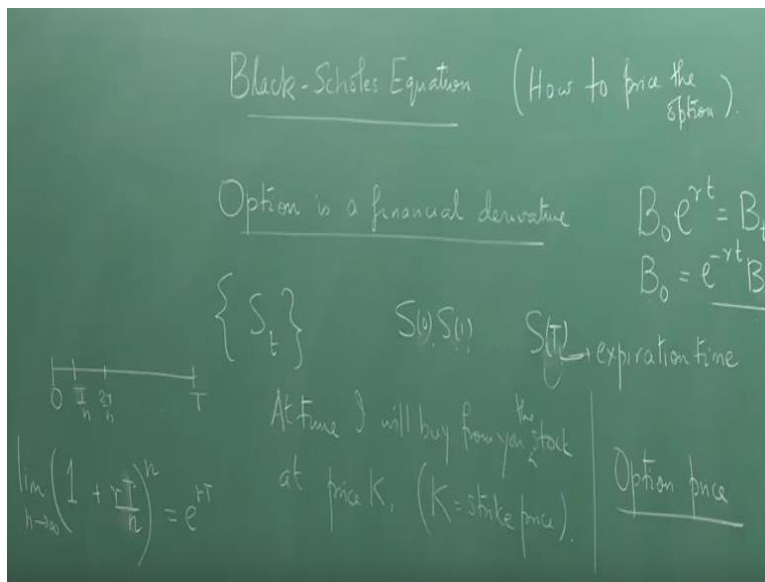 Black-Scholes Equation (How to price the option).
Option is a financial derivative
B₀e^{rt} = B_t
B₀ = e^{-rt} B
{S_t} S(0), S(1) S(T) → expiration time
0 T/n 2T/n T
At time I will buy from you the stock
at price K, (K = strike price).
Option price
lim_{n→∞} (1 + r T/n)^n = e^{rT}